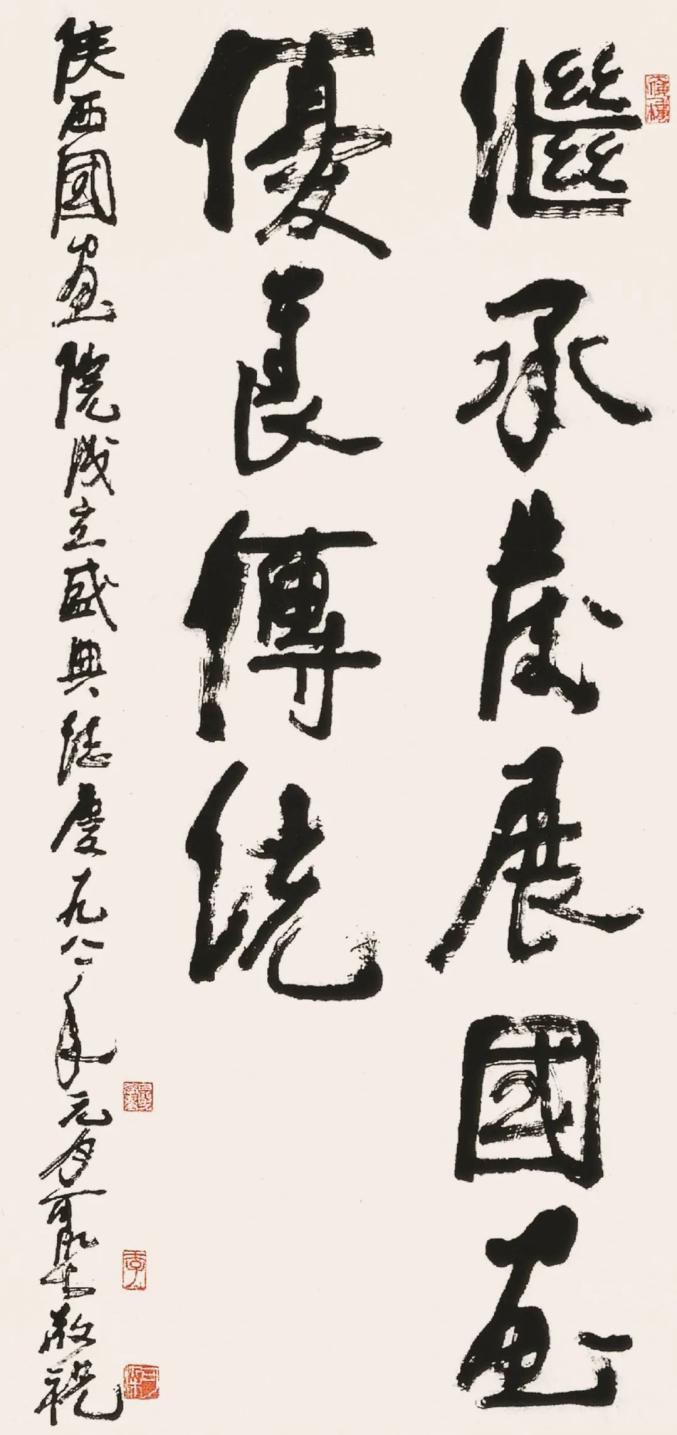 繼承發展國畫
優良傳統
陝西國畫院成立盛典誌慶一九八一年元月可染敬祝